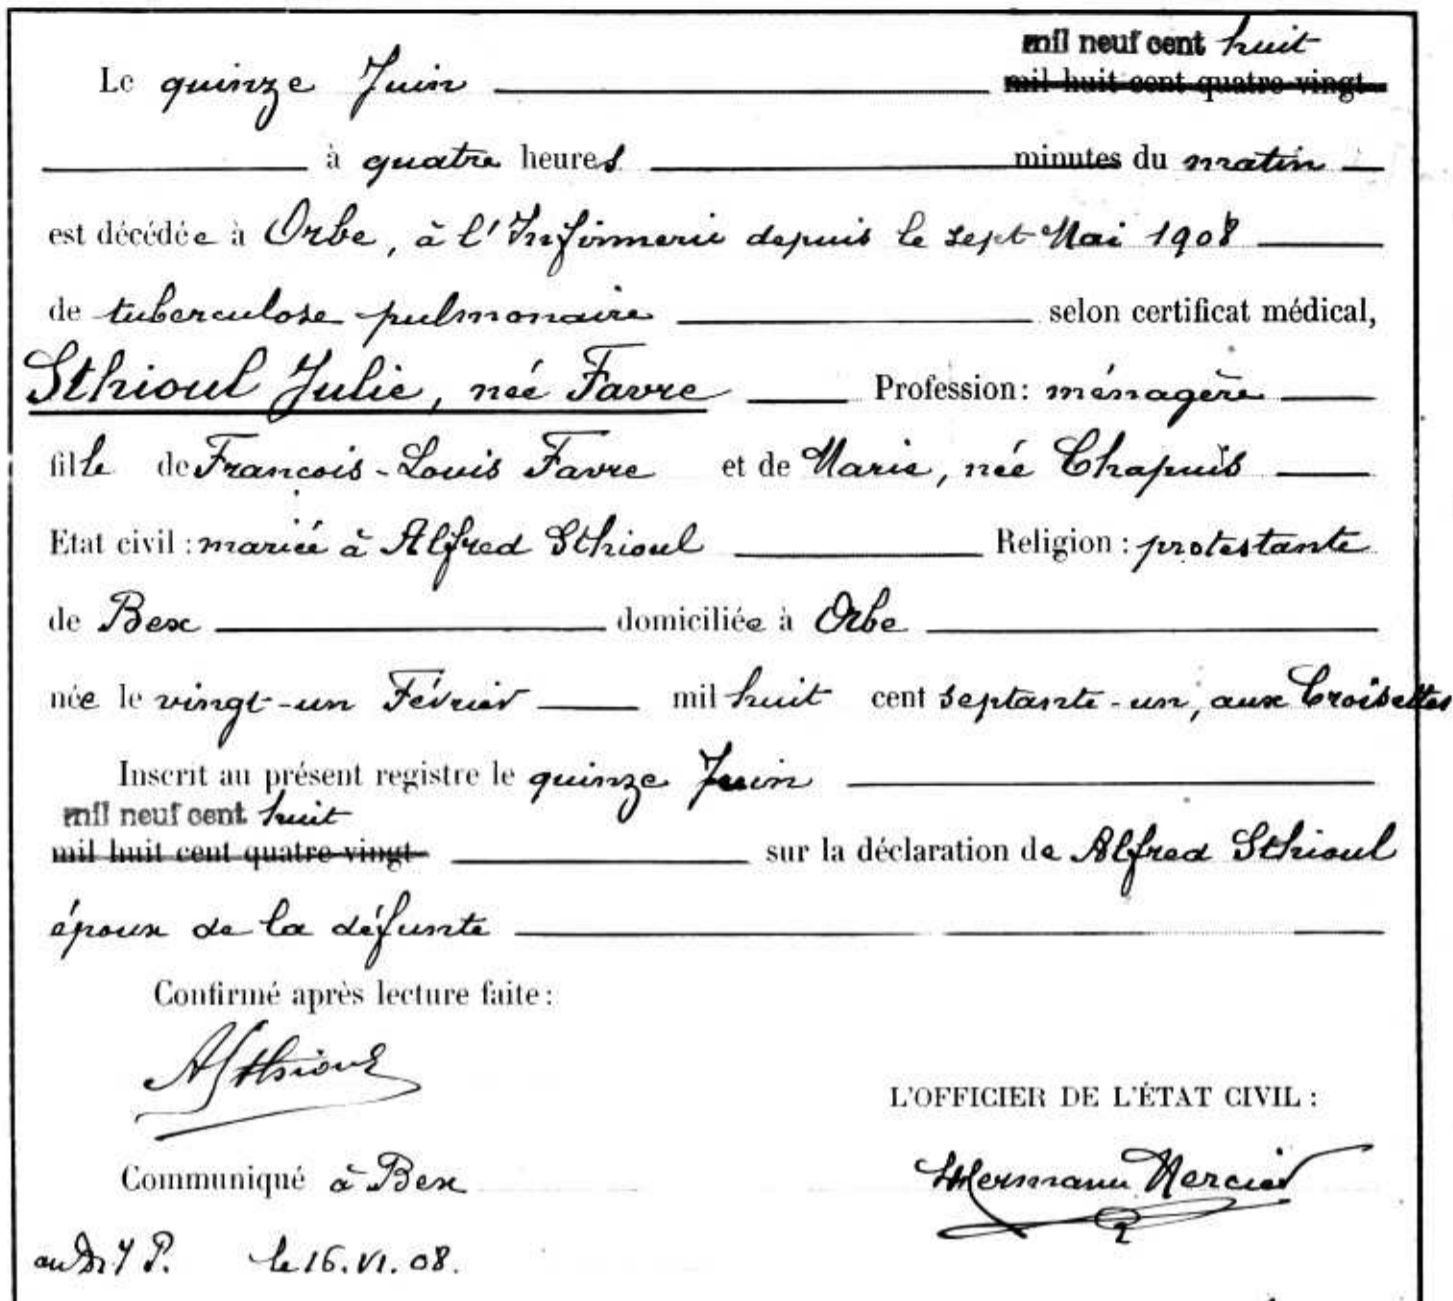 mil neuf cent huit
Le quinze Juin mil huit cent quatre-vingt
à quatre heures minutes du matin
est décédée à Orbe, à l'Infirmerie depuis le sept Mai 1908
de tuberculose pulmonaire selon certificat médical,
Sthioul Julie, née Favre Profession: ménagère
fille de Francois-Louis Favre et de Marie, née Chapuis
Etat civil: mariée à Alfred Sthioul Religion: protestante
de Bex domiciliée à Orbe
née le vingt-un Février mil huit cent septante-un, aux Croisettes
Inscrit au présent registre le quinze Juin
mil neuf cent huit
mil huit cent quatre-vingt sur la déclaration de Alfred Sthioul
époux de la défunte
Confirmé après lecture faite:
ASthioul
L'OFFICIER DE L'ÉTAT CIVIL:
Communiqué à Bex
Hermann Mercier
au P. le 16.VI.08.